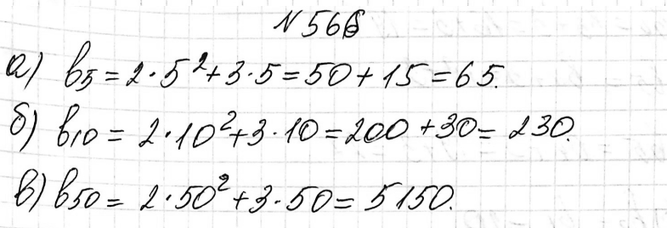 N 566
а) b₅ = 2·5²+3·5=50+15=65.
б) b₁₀ = 2·10²+3·10=200+30=230.
в) b₅₀ = 2·50²+3·50=5150.